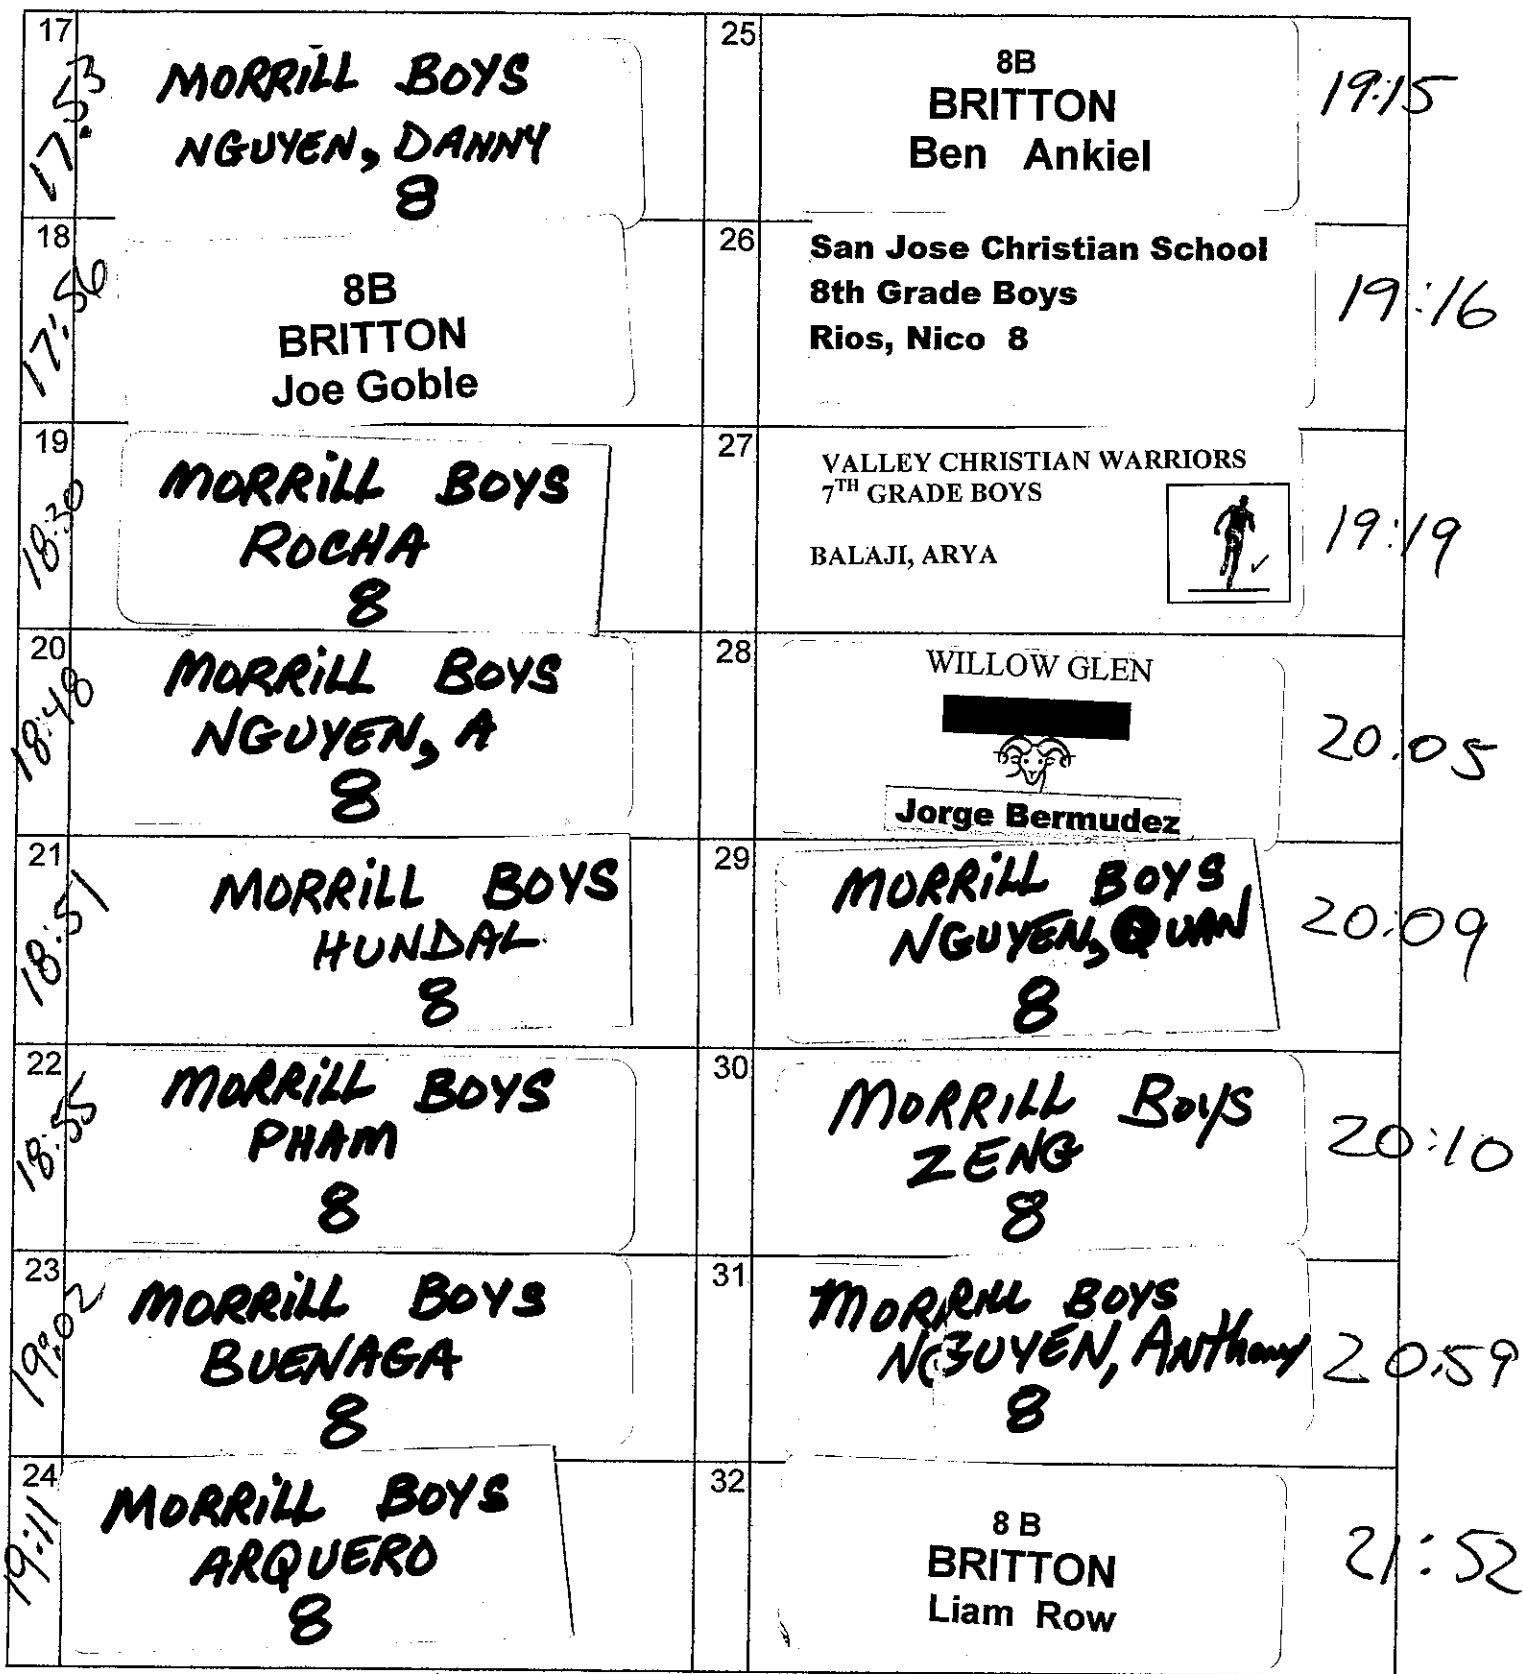 17
17:53
MORRiLL BOYS
NGUYEN, DANNY
8
18
17:56
8B
BRITTON
Joe Goble
19
18:30
MORRiLL BOYS
ROCHA
8
20
18:48
MORRiLL BOYS
NGUYEN, A
8
21
18:51
MORRiLL BOYS
HUNDAL
8
22
18:55
MORRiLL BOYS
PHAM
8
23
19:02
MORRiLL BOYS
BUENAGA
8
24
19:11
MORRiLL BOYS
ARQUERO
8
25
8B
BRITTON
Ben Ankiel
19:15
26
San Jose Christian School
8th Grade Boys
Rios, Nico 8
19:16
27
VALLEY CHRISTIAN WARRIORS
7TH GRADE BOYS
BALAJI, ARYA
19:19
28
WILLOW GLEN
Jorge Bermudez
20:05
29
MORRiLL BOYS
NGUYEN, QUAN
8
20:09
30
MORRILL Boys
ZENG
8
20:10
31
MORRiLL BOYS
NGUYEN, Anthony
8
20:59
32
8 B
BRITTON
Liam Row
21:52